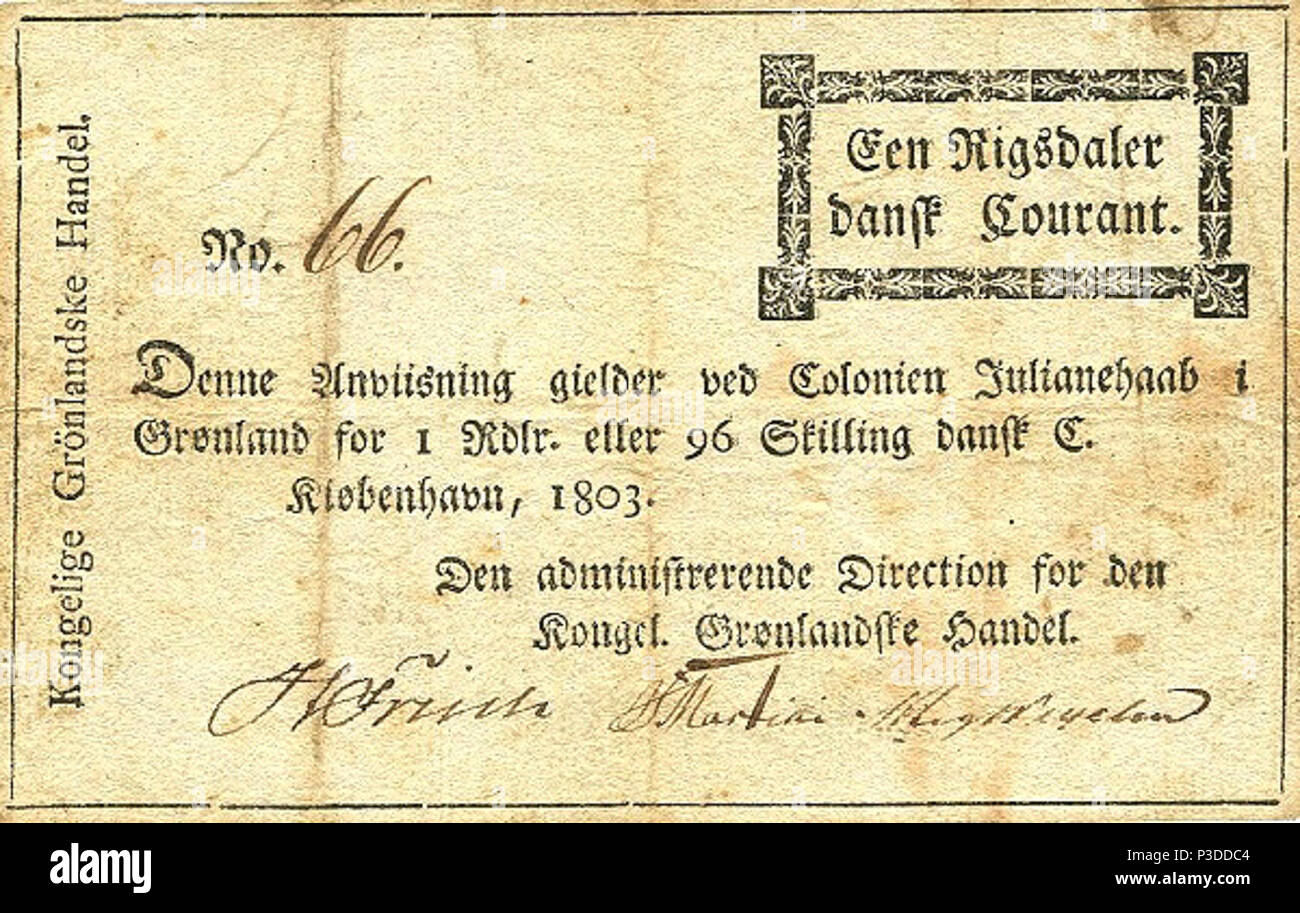 Kongelige Grönlandske Handel.
Een Rigsdaler
dansk Courant.
No. 66.
Denne Anviisning gielder ved Colonien Julianehaab i
Grønland for 1 Rdlr. eller 96 Skilling dansk C.
Kiøbenhavn, 1803.
Den administrerende Direction for den
Kongel. Grønlandske Handel.
Martini
alamy
Image ID: P3DDC4
www.alamy.com